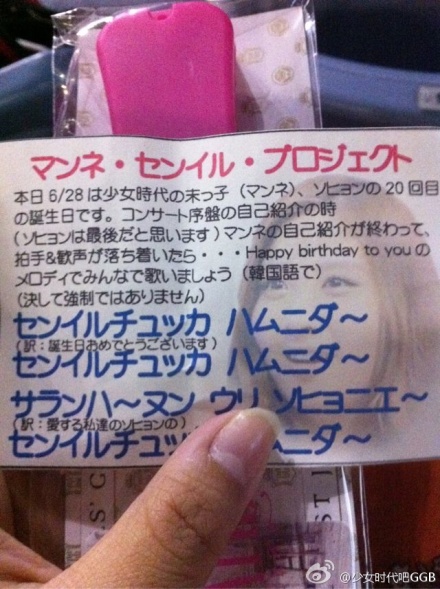 マンネ・センイル・プロジェクト
本日6/28は少女時代の末っ子（マンネ）、ソヒョンの20回目
の誕生日です。コンサート序盤の自己紹介の時
（ソヒョンは最後だと思います）マンネの自己紹介が終わって、
拍手&歓声が落ち着いたら・・・Happy birthday to youの
メロディでみんなで歌いましょう（韓国語で）
（決して強制ではありません）
センイルチュッカ ハムニダ～
（訳：誕生日おめでとうございます）
センイルチュッカ ハムニダ～
サランハ～ヌン ウリ ソヒョニエ～
（訳：愛する私達のソヒョンの）
センイルチュッ ハムニダ～
@少女时代吧GGB